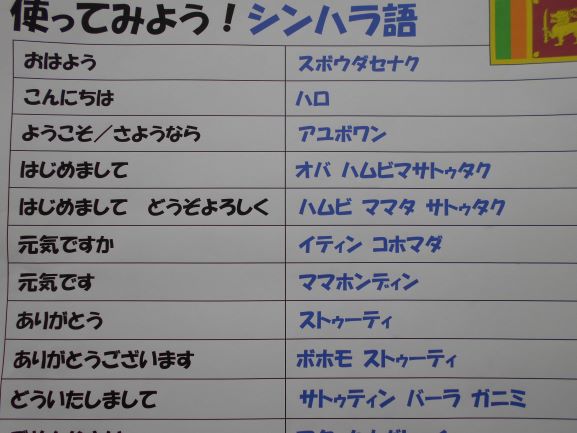 使ってみよう！シンハラ語
おはよう スボウダセナク
こんにちは ハロ
ようこそ／さようなら アユボワン
はじめまして オバ ハムビマサトゥタク
はじめまして どうぞよろしく ハムビ ママタ サトゥタク
元気ですか イティン コホマダ
元気です ママホンディン
ありがとう ストゥーティ
ありがとうございます ボホモ ストゥーティ
どういたしまして サトゥティン バーラ ガニミ